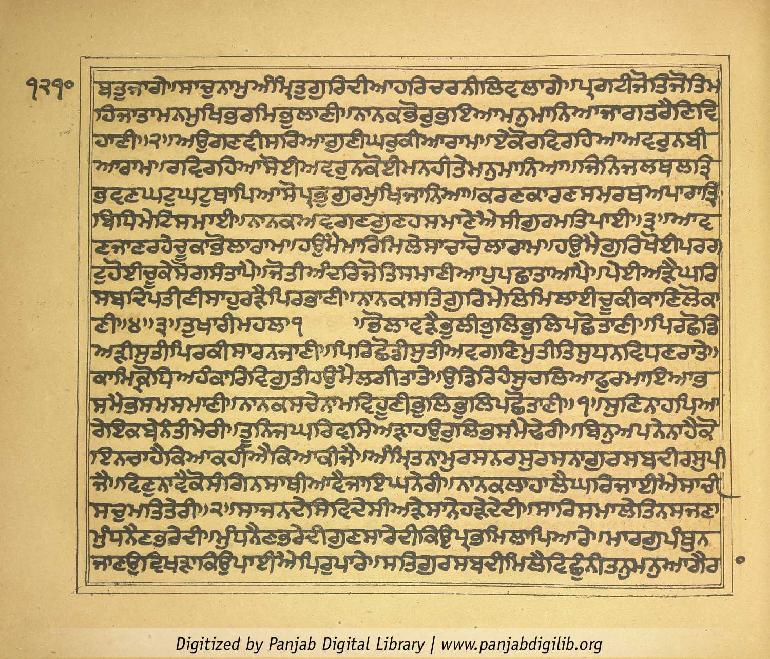 ੧੨੧੦
ਬਤੁਜਾਗੇ॥ਸਾਚੁਨਾਮੁਅੰਮ੍ਰਿਤੁਗੁਰਿਦੀਆਹਰਿਚਰਨੀਲਿਵਲਾਗੇ॥ਪ੍ਰਗਟੀਜੋਤਿਜੋਤਿਮ
ਹਿਜਾਤਾਮਨਮੁਖਿਭਰਮਿਭੁਲਾਣੀ॥ਨਾਨਕਭੋਰੁਭਇਆਮਨੁਮਾਨਿਆਜਾਗਤਰੈਣਿਵਿ
ਹਾਣੀ॥੨॥ਅਉਗਣਵੀਸਰਿਆਗੁਣੀਘਰੁਕੀਆਰਾਮ॥ਏਕੋਰਵਿਰਹਿਆਅਵਰੁਨਬੀ
ਆਰਾਮ॥ਰਵਿਰਹਿਆਸੋਈਅਵਰੁਨਕੋਈਮਨਹੀਤੇਮਨੁਮਾਨਿਆ॥ਜਿਨਿਜਲਥਲਤ੍ਰਿ
ਭਵਣਘਟੁਘਟੁਥਾਪਿਆਸੋਪ੍ਰਭੁਗੁਰਮੁਖਿਜਾਨਿਆ॥ਕਰਣਕਾਰਣਸਮਰਥਅਪਾਰਾਤ੍ਰਿ
ਬਿਧਿਮੇਟਿਸਮਾਈ॥ਨਾਨਕਅਵਗਣਗੁਣਹਸਮਾਣੇਐਸੀਗੁਰਮਤਿਪਾਈ॥੩॥ਆਵ
ਣਜਾਣਰਹੇਚੂਕਾਭੋਲਾਰਾਮ॥ਹਉਮੈਮਾਰਿਮਿਲੇਸਾਚਾਚੋਲਾਰਾਮ॥ਹਉਮੈਗੁਰਿਖੋਈਪਰਗ
ਟੁਹੋਈਚੂਕੇਸੋਗਸੰਤਾਪੈ॥ਜੋਤੀਅੰਦਰਿਜੋਤਿਸਮਾਣੀਆਪੁਪਛਾਤਾਆਪੈ॥ਪੇਈਅੜੈਘਰਿ
ਸਬਦਿਪਤੀਣੀਸਾਹੁਰੜੈਪਿਰਭਾਣੀ॥ਨਾਨਕਸਤਿਗੁਰਿਮੇਲਿਮਿਲਾਈਚੂਕੀਕਾਣਿਲੋਕਾ
ਣੀ॥੪॥੩॥ਤੁਖਾਰੀਮਹਲਾ੧ ॥ਭੋਲਾਵੜੈਭੁਲੀਭੁਲਿਭੁਲਿਪਛੋਤਾਣੀ॥ਪਿਰਿਛੋਡਿ
ਅੜੀਸੁਤੀਪਿਰਕੀਸਾਰਨਜਾਣੀ॥ਪਿਰਿਛੋਡੀਸੁਤੀਅਵਗਣਿਮੁਤੀਤਿਸੁਧਨਵਿਧਣਰਾਤੇ॥
ਕਾਮਿਕ੍ਰੋਧਿਅਹੰਕਾਰਿਵਿਗੁਤੀਹਉਮੈਲਗੀਤਾਤੇ॥ਉਡਰਿਹੰਸੁਚਲਿਆਫੁਰਮਾਇਆਭ
ਸਮੈਭਸਮਸਮਾਣੀ॥ਨਾਨਕਸਚੇਨਾਮਵਿਹੂਣੀਭੁਲਿਭੁਲਿਪਛੋਤਾਣੀ॥੧॥ਸੁਣਿਨਾਹਪਿਆ
ਰੇਇਕਬੇਨੰਤੀਮੇਰੀ॥ਤੂਨਿਜਘਰਿਵਸਿਅੜਾਹਉਰੁਲਿਭਸਮੈਢੇਰੀ॥ਬਿਨੁਅਪਨੇਨਾਹੈਕੋ
ਇਨਚਾਹੈਕਿਆਕਹੀਐਕਿਆਕੀਜੈ॥ਅੰਮ੍ਰਿਤਨਾਮੁਰਸਨਰਸੁਰਸਨਾਗੁਰਸਬਦੀਰਸੁਪੀ
ਜੈ॥ਵਿਣੁਨਾਵੈਕੋਸੰਗਿਨਸਾਥੀਆਵੈਜਾਇਘਨੇਰੀ॥ਨਾਨਕਲਾਹਾਲੈਘਰਿਜਾਈਐਸਾਚੀ
ਸਚੁਮਤਿਤੇਰੀ॥੨॥ਸਾਜਨਦੇਸਿਵਿਦੇਸੀਅੜੇਸਾਨੇਹੜੇਦੇਦੀ॥ਸਾਰਿਸਮਾਲੇਤਿਨਸਜਣਾ
ਮੁੰਧਨੈਣਭਰੇਦੀ॥ਮੁੰਧਨੈਣਭਰੇਦੀਗੁਣਸਾਰੇਦੀਕਿਉਪ੍ਰਭਮਿਲਾਪਿਆਰੇ॥ਮਾਰਗੁਪੰਥੁਨ
ਜਾਣਉਵਿਖੜਾਕਿਉਪਾਈਐਪਿਰੁਪਾਰੇ॥ਸਤਿਗੁਰਸਬਦੀਮਿਲੈਵਿਛੁੰਨੀਤਨੁਮਨੁਆਗੈਰ
Digitized by Panjab Digital Library | www.panjabdigilib.org